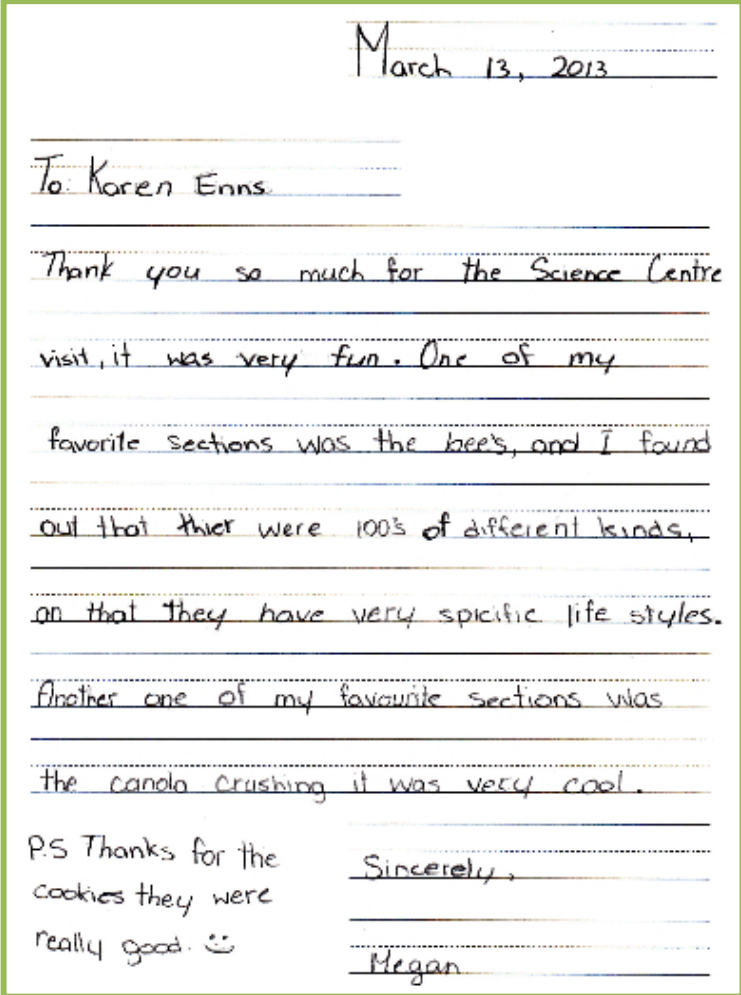 March 13, 2013
To: Karen Enns
Thank you so much for the Science Centre
visit, it was very fun. One of my
favorite sections was the bee's, and I found
out that thier were 100's of different kinds,
an that they have very spicific life styles.
Another one of my favourite sections was
the canola crushing it was very cool.
P.S Thanks for the
cookies they were
really good. :)
Sincerely,
Megan